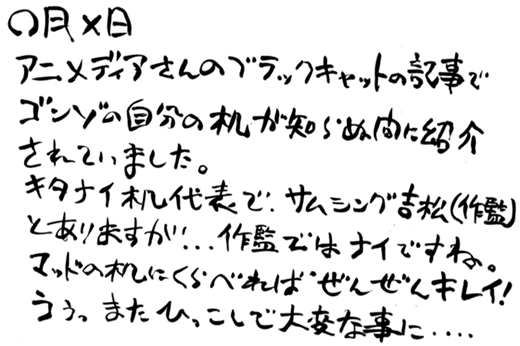 〇月×日
アニメディアさんのブラックキャットの記事で
ゴンゾの自分の机が知らぬ間に紹介
されていました。
キタナイ机代表で、サムシング吉松(作監)
とありますが!...作監ではナイですね。
マッドの机にくらべればぜんぜんキレイ!
うぅっまたひっこしで大変な事に....